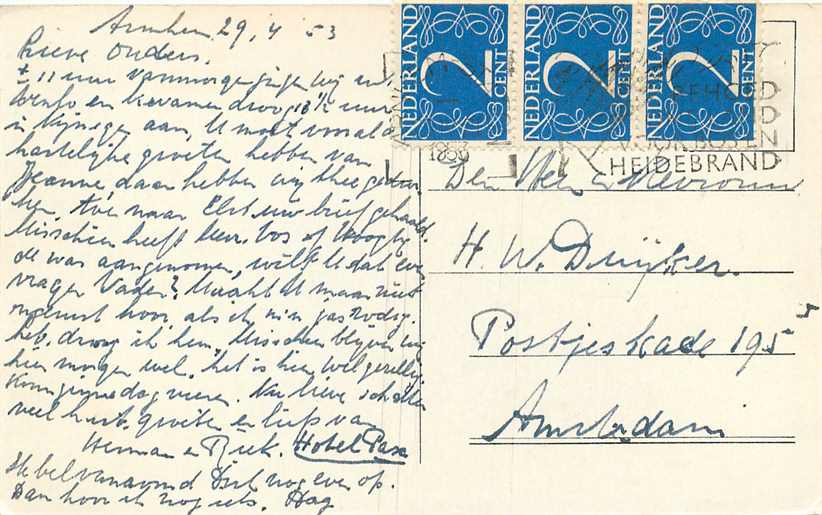 Arnhem 29, 4 53
Lieve Ouders,
± 11 uur vanmorgen gingen wij uit
Venlo en kwamen droog uur
in Nijmegen aan, U moet vooral
hartelijke groeten hebben van
Jeanne, daar hebben wij thee gedron-
ken. Toen naar Elst uw brief gehaald.
Misschien heeft Mevr. Vos of
de was aangenomen, wilt U dat even
vragen Vader? Wacht U maar niet
ongerust hoor, als ik m'n jas nodig
heb, draag ik hem. Misschien blijven wij
hier morgen wel, het is hier wel gezellig
Koninginnedag vieren. Nu lieve schatten
veel hart. groeten en liefs van
Herman en Riek. Hotel Pax
Ik bel vanavond nog even op.
Dan hoor ik nog iets. Dag
NEDERLAND 2 CENT
NEDERLAND 2 CENT
NEDERLAND 2 CENT
1953
VOOR BOS EN
HEIDEBRAND
Den Heer en Mevrouw
H. W. Duijker.
Postjeskade 195
Amsterdam